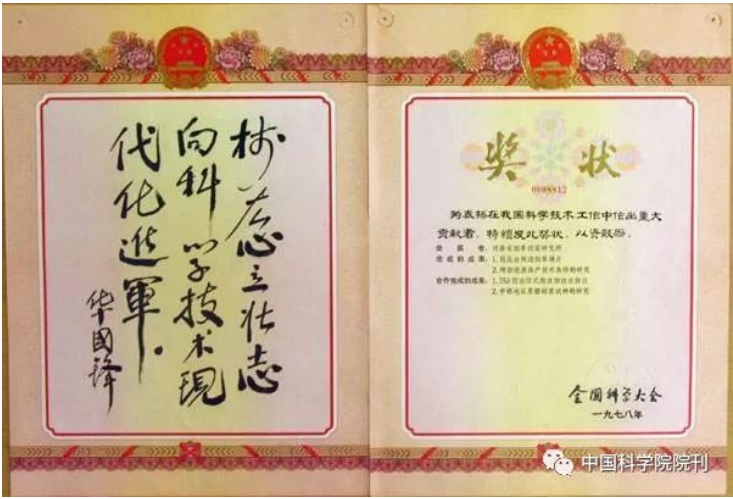 树雄心立壮志
向科学技术現
代化進軍。
华國锋
奖状
为表扬在我国科学技术工作中作出重大
贡献者，特颁发此奖状，以资鼓励。
受奖者：
完成的成果：1.
2.
合作完成的成果：1.
2.
全国科学大会
一九七八年
中国科学院院刊